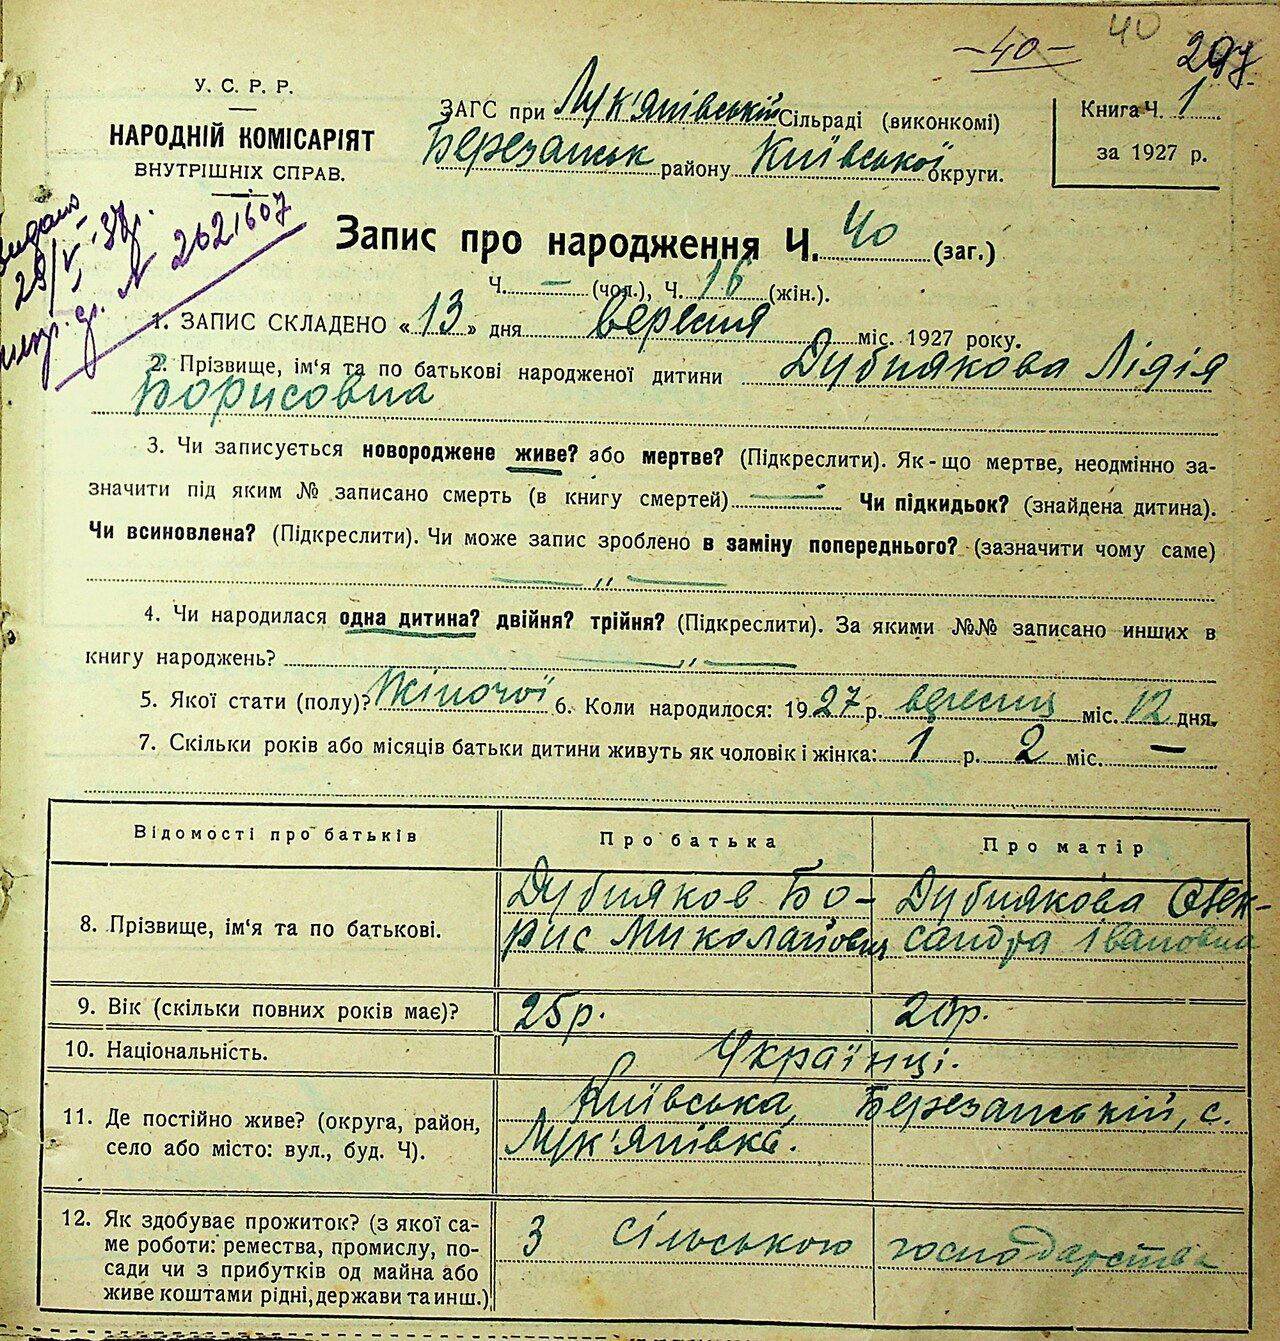 40
-40-
297
У. С. Р. Р.
НАРОДНІЙ КОМІСАРІЯТ
ВНУТРІШНІХ СПРАВ.
ЗАГС при Лук'янівській Сільраді (виконкомі)
Березанськ району Київської округи.
Книга Ч. 1
за 1927 р.
Видано
29/V 37р.
№ 2621607
Запис про народження Ч. 40 (заг.)
Ч. — (чол.), Ч. 16 (жін.).
1. ЗАПИС СКЛАДЕНО «13» дня вересня міс. 1927 року.
2. Прізвище, ім'я та по батькові народженої дитини Дубнякова Лідія
Борисовна
3. Чи записується новороджене живе? або мертве? (Підкреслити). Як-що мертве, неодмінно за-
значити під яким № записано смерть (в книгу смертей) — Чи підкидьок? (знайдена дитина).
Чи всиновлена? (Підкреслити). Чи може запис зроблено в заміну попереднього? (зазначити чому саме)
— „ —
4. Чи народилася одна дитина? двійня? трійня? (Підкреслити). За якими №№ записано инших в
книгу народжень? — „ —
5. Якої стати (полу)? Жіночої 6. Коли народилося: 1927 р. вересня міс. 12 дня.
7. Скільки років або місяців батьки дитини живуть як чоловік і жінка: 1 р. 2 міс. —
Відомості про батьків
Про батька
Про матір
8. Прізвище, ім'я та по батькові.
Дубняков Бо-
рис Миколайович
Дубнякова Олек-
сандра Івановна
9. Вік (скільки повних років має)?
25р.
20р.
10. Національність.
Українці.
11. Де постійно живе? (округа, район,
село або місто: вул., буд. Ч).
Київська, Березанській, с.
Лук'янівка.
12. Як здобуває прожиток? (з якої са-
ме роботи: ремества, промислу, по-
сади чи з прибутків од майна або
живе коштами рідні, держави та инш.)
З сільського господарства